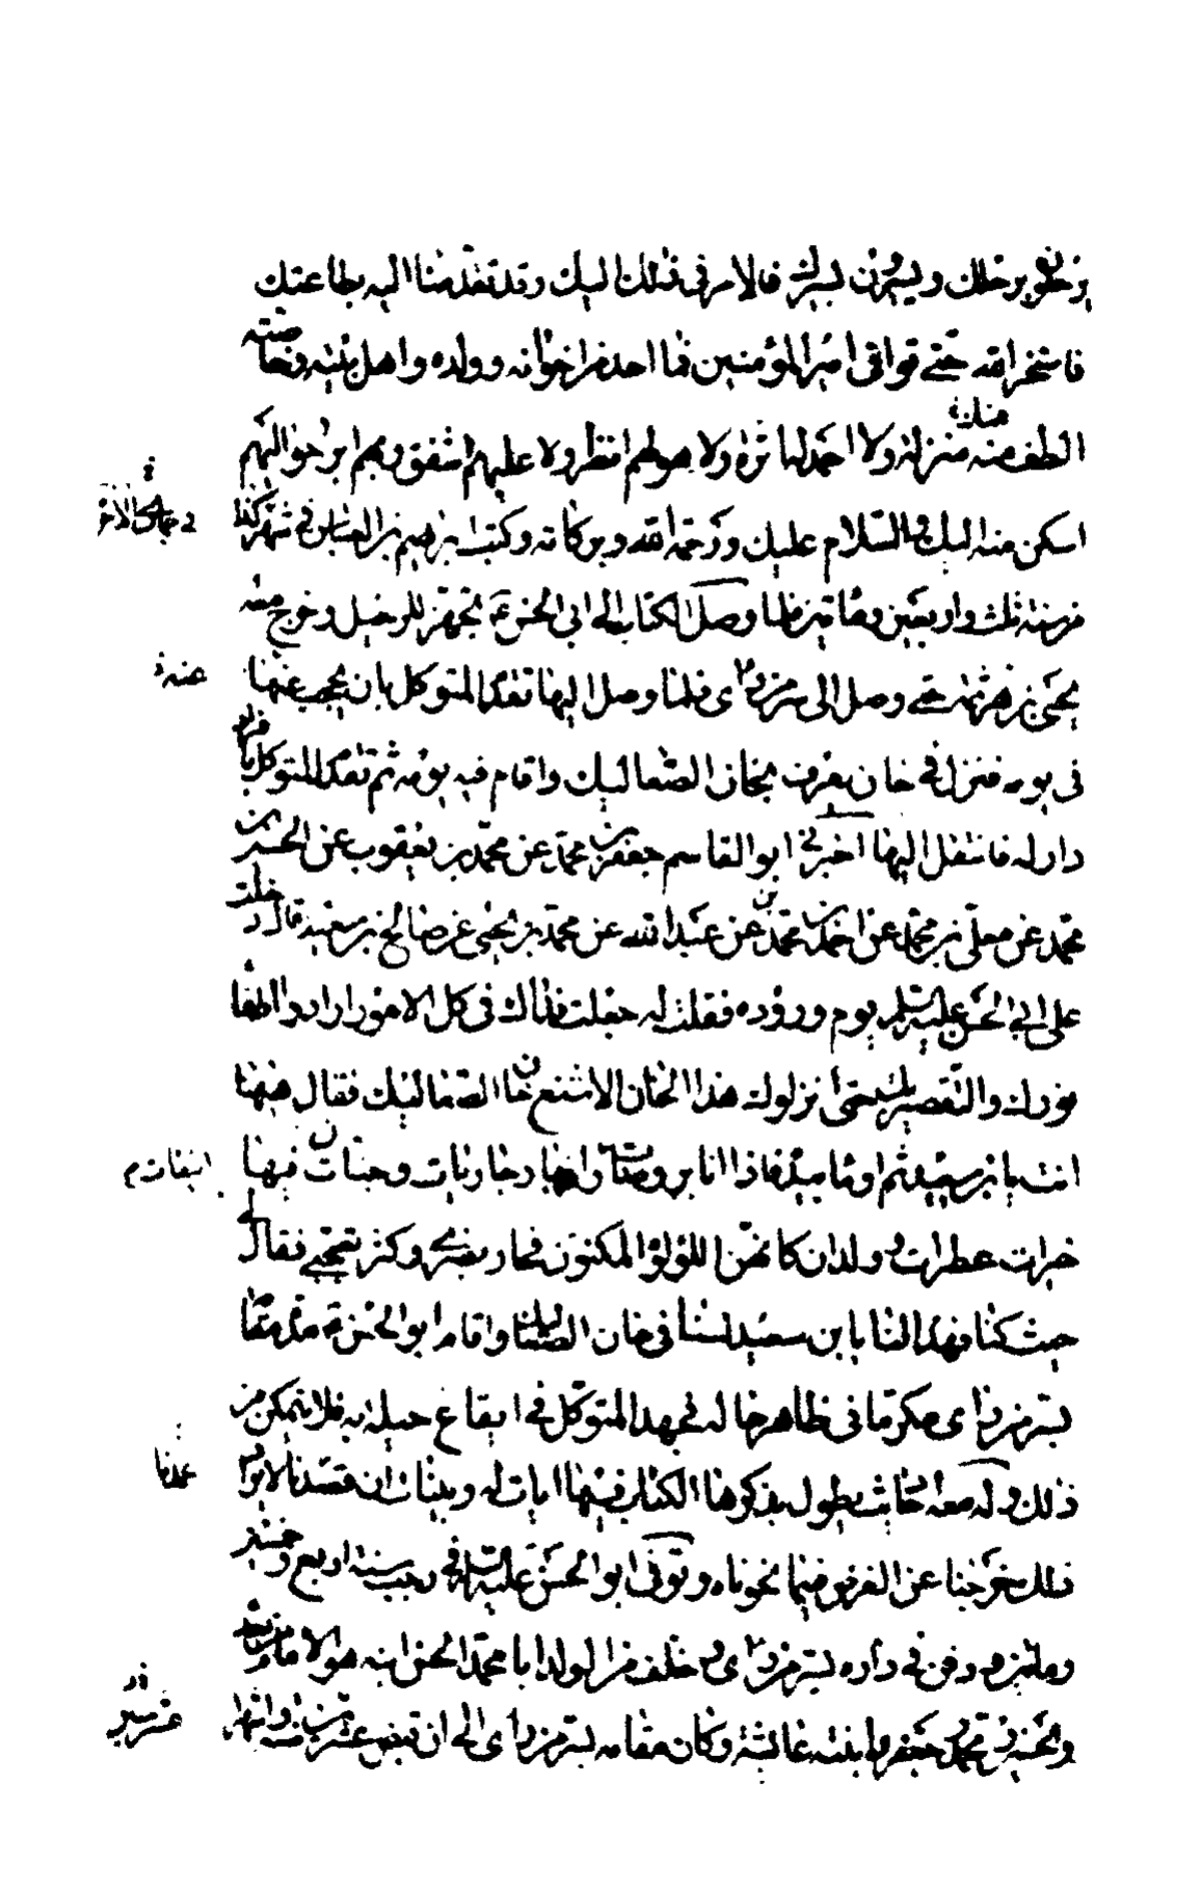 يرحلون برحلك ويسيرون بسيرك فالامر في ذلك اليك وقد تقدمنا اليه بطاعتك
فاستخر الله حتى توافي امير المؤمنين فما احد من اخوانه وولده واهل بيته وخاصته
الطف منه منزلة ولا احمد لها ثرة ولا هو لهم انظر ولا عليهم اشفق وبهم ابر هو اليهم
منك
اسكن منه اليك والسلام عليك ورحمة الله وبركاته وكتب ابرهيم بن العباس في شهر كذا
في جمادى الاخر
من سنة ثلث واربعين ومأتين فلما وصل الكتاب الى ابي الحسن ع تجهز للرحيل وخرج معه
يحيى بن هرثمة حتى وصل الى سر من رأى فلما وصل اليها تقدم المتوكل بان يحجب عنها
عنه
في يومه فنزل في خان يعرف بخان الصعاليك واقام فيه يومه ثم تقدم المتوكل بافراد
دار له فانتقل اليها اخبرني ابو القاسم جعفر بن محمد عن محمد بن يعقوب عن الحسين بن
محمد عن معلى بن محمد عن احمد بن محمد بن عبد الله عن محمد بن يحيى عن صالح بن سعيد قال دخلت
على ابي الحسن عليه السلم يوم وروده فقلت له جعلت فداك في كل الامور ارادوا اطفا
نورك والتقصير بك حتى انزلوك هذا الخان الاشنع خان الصعاليك فقال هيهنا
انت يا بن سعيد ثم اوما بيده فاذا انا بروضات وانهار جاريات وجنات فيها
خيرات عطرات وولدان كانهن اللؤلؤ المكنون فحار بصري وكثر تعجبي فقال لي
حيث كنا فهذا لنا يا بن سعيد لسنا في خان الصعاليك واقام ابو الحسن ع مدة مقامه
بسر من رأى مكرما في ظاهر حاله يجهد المتوكل في ايقاع حيلة به فلا يتمكن من
ذلك وله معه احاديث يطول بذكرها الكتاب فيها ايات له وبينات ان قصدنا لايراد
عمدنا
ذلك خرجنا عن الغرض فيما نحوناه وتوفي ابو الحسن عليه السلم في رجب سنة اربع وخمسين
ومأتين ودفن في داره بسر من رأى وخلف من الولد ابا محمد الحسن ابنه هو الامام من بعده
والحسين ومحمد وجعفر وابنته عائشة وكان مقامه بسر من رأى الى ان قبض عشر سنين واشهر